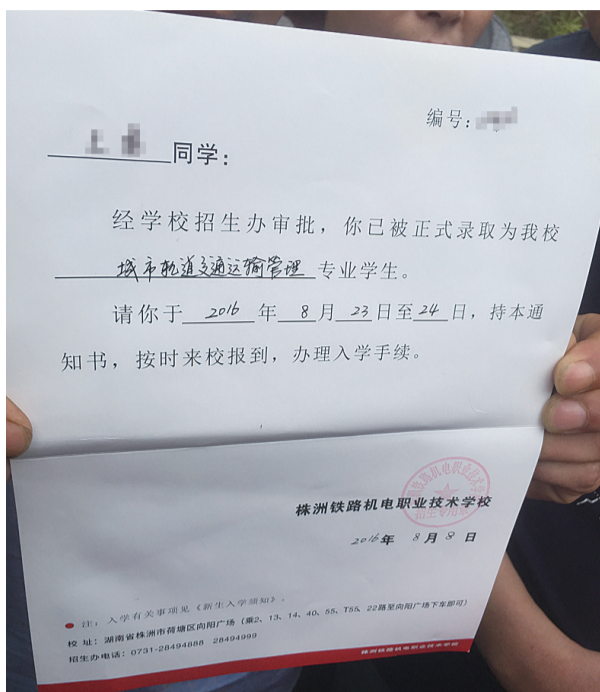 编号:
同学:
经学校招生办审批，你已被正式录取为我校
城市轨道交通运输管理 专业学生。
请你于 2016 年 8 月 23 日至 24 日，持本通
知书，按时来校报到，办理入学手续。
株洲铁路机电职业技术学校
2016年 8月8日
注：入学有关事项见《新生入学须知》。
校 址：湖南省株洲市荷塘区向阳广场（乘2、13、14、40、55、T55、22路至向阳广场下车即可）
招生办电话：0731-28494888 28494999
株洲铁路机电职业技术学校